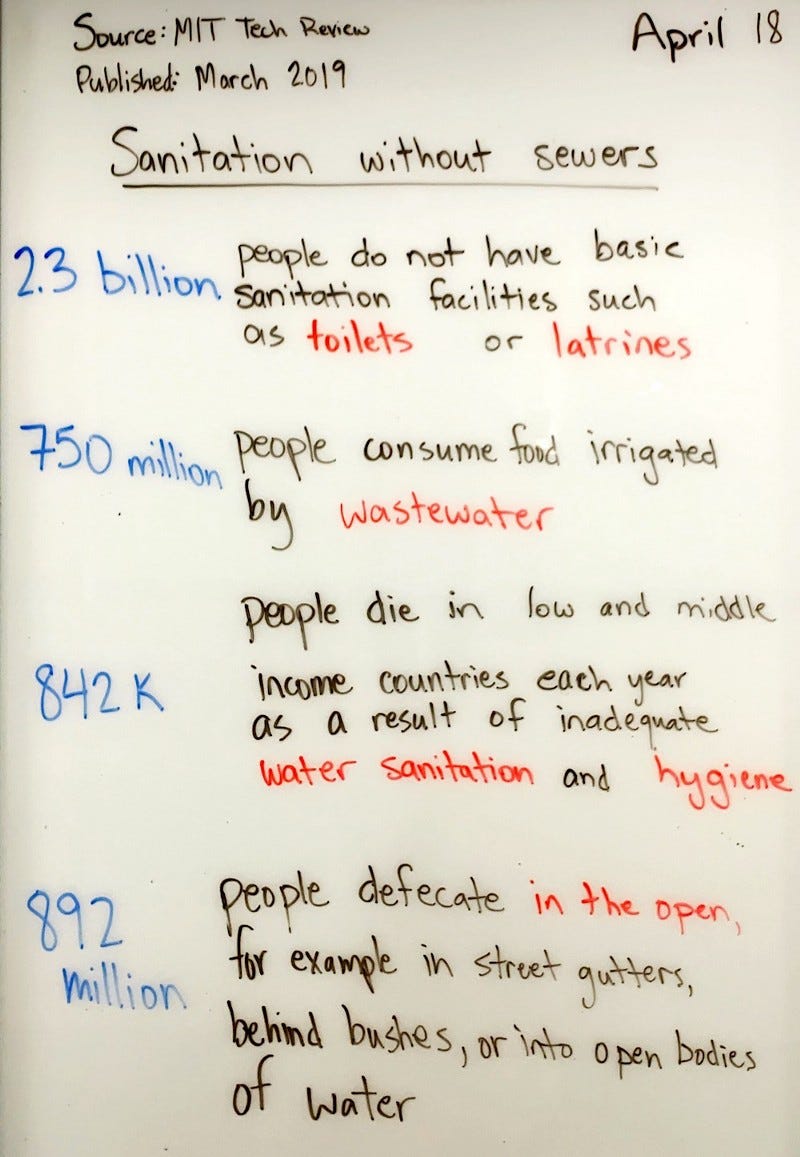 Source: MIT Tech Review
April 18
Published: March 2019
Sanitation without sewers
2.3 billion people do not have basic
sanitation facilities such
as toilets or latrines
750 million people consume food irrigated
by wastewater
people die in low and middle
842 K income countries each year
as a result of inadequate
water sanitation and hygiene
892 million people defecate in the open,
for example in street gutters,
behind bushes, or into open bodies
of water